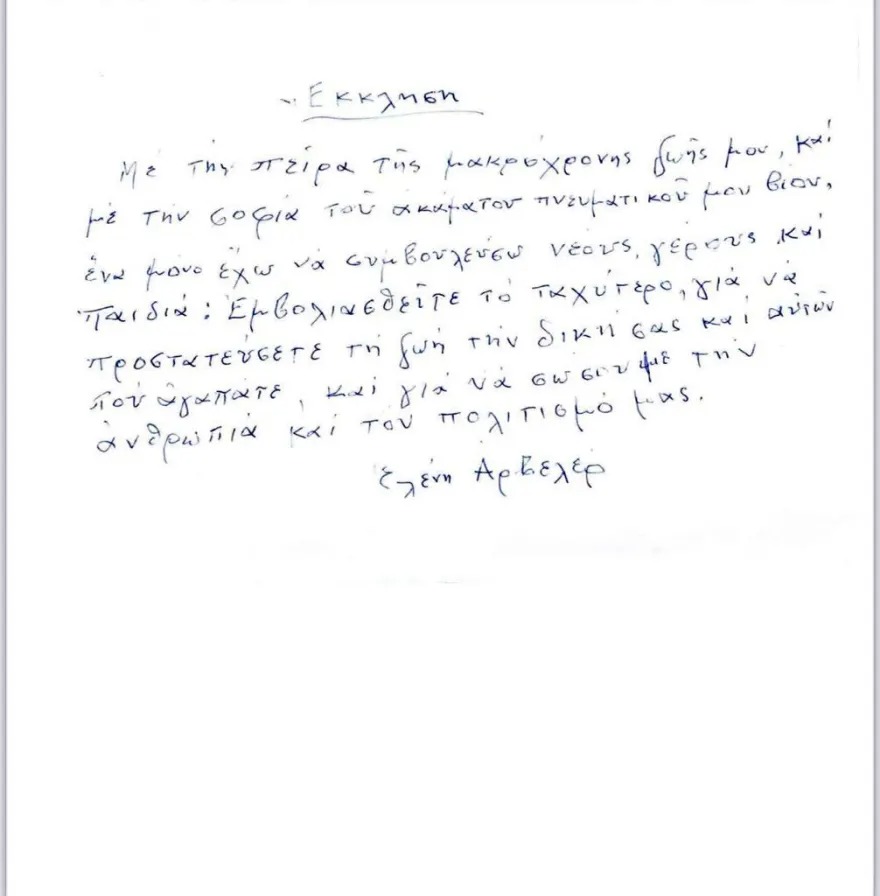 Εκκληση
Μέ τήν πείρα τῆς μακρόχρονης ζωῆς μου, καί
μέ τήν σοφιά τοῦ ἀκάματου πνευματικοῦ μου βίου,
ἕνα μόνο ἔχω νά συμβουλεύσω νέους, γέρους καί
παιδιά: Ἐμβολιασθεῖτε τό ταχύτερο, γιά νά
προστατεύσετε τή ζωή τήν δική σας καί αὐτῶν
πού ἀγαπᾶτε, καί γιά νά σώσουμε τήν
ἀνθρωπιά καί τόν πολιτισμό μας.
Ἑλένη Ἀρβελέρ